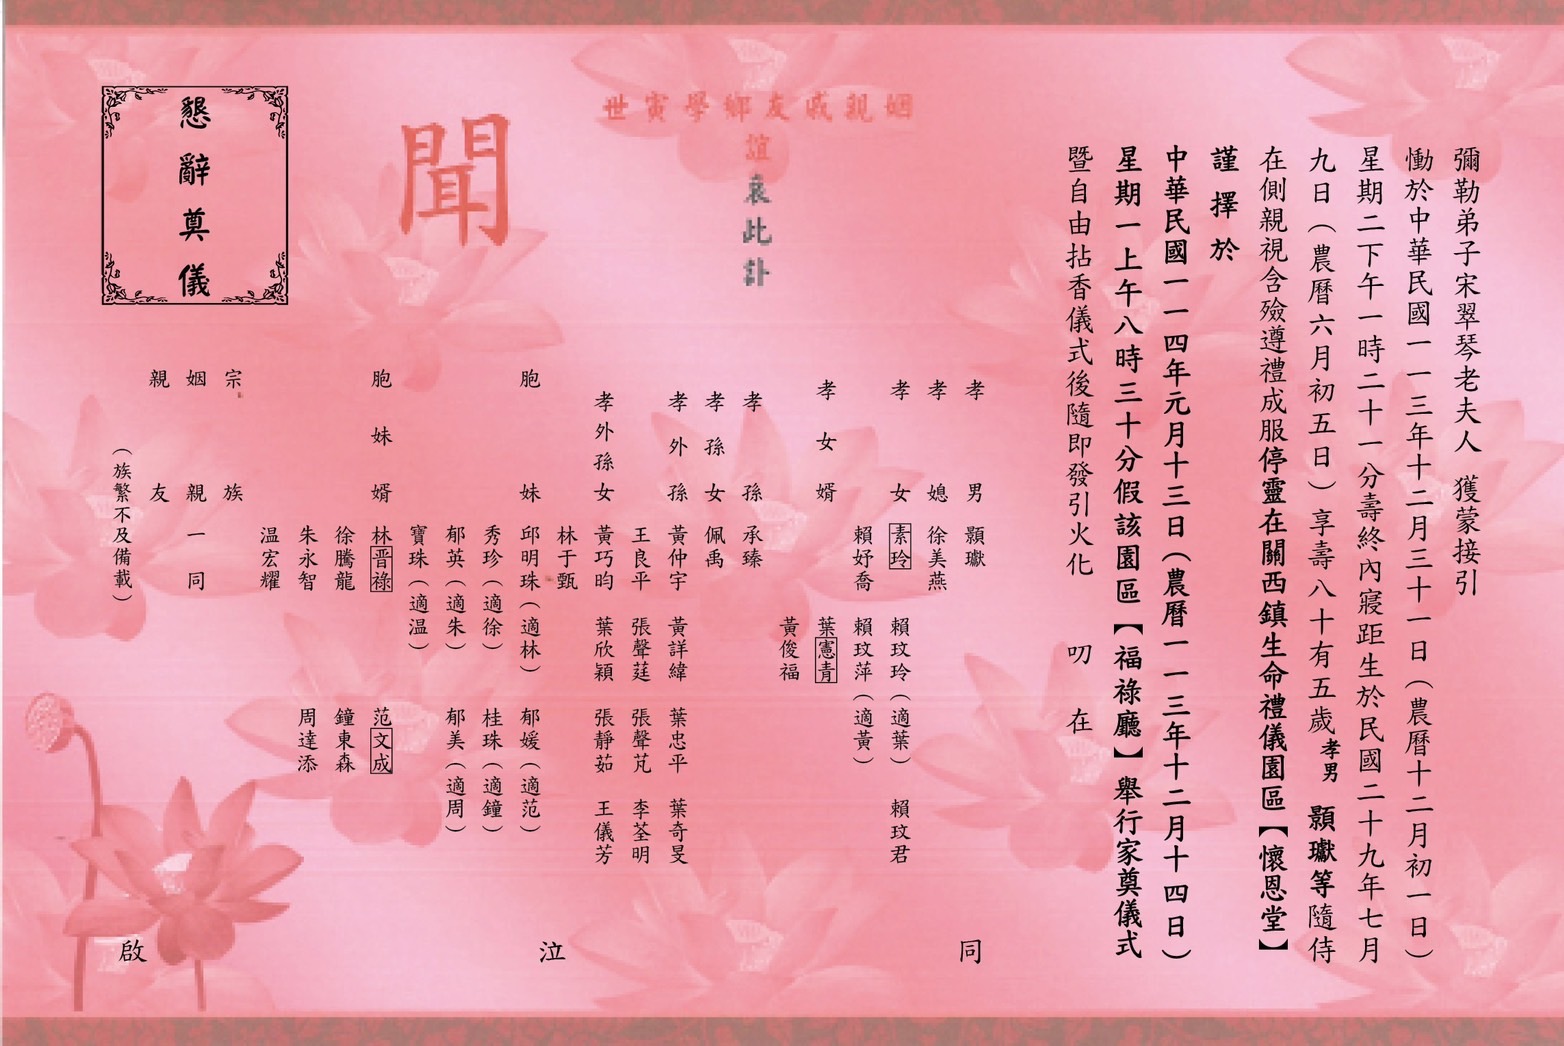 彌勒弟子宋翠琴老夫人 獲蒙接引
慟於中華民國一一三年十二月三十一日（農曆十二月初一日）
星期二下午一時二十一分壽終內寢距生於民國二十九年七月
九日（農曆六月初五日）享壽八十有五歲孝男 顥瓛等隨侍
在側親視含殮遵禮成服停靈在關西鎮生命禮儀園區【懷恩堂】
謹擇於
中華民國一一四年元月十三日（農曆一一三年十二月十四日）
星期一上午八時三十分假該園區【福祿廳】舉行家奠儀式
暨自由拈香儀式後隨即發引火化 叨在
姻親戚友鄉學寅世
誼哀此訃
聞
懇辭奠儀
孝男 顥瓛
孝媳 徐美燕
孝女 素玲 賴玟玲（適葉） 賴玟君
賴妤喬 賴玟萍（適黃）
孝女婿 葉憲青
黃俊福
孝孫 承臻
孝孫女 佩禹
孝外孫 黃仲宇 黃詳緯 葉忠平 葉奇旻
王良平 張聲莛 張聲芃 李荃明
孝外孫女 黃巧昀 葉欣穎 張靜茹 王儀芳
林于甄
胞妹 邱明珠（適林） 郁媛（適范）
秀珍（適徐） 桂珠（適鐘）
郁英（適朱） 郁美（適周）
寶珠（適温）
胞妹婿 林晋祿 范文成
徐騰龍 鐘東森
朱永智 周達添
温宏耀
宗族
姻親一同
親友
（族繁不及備載）
同泣啟